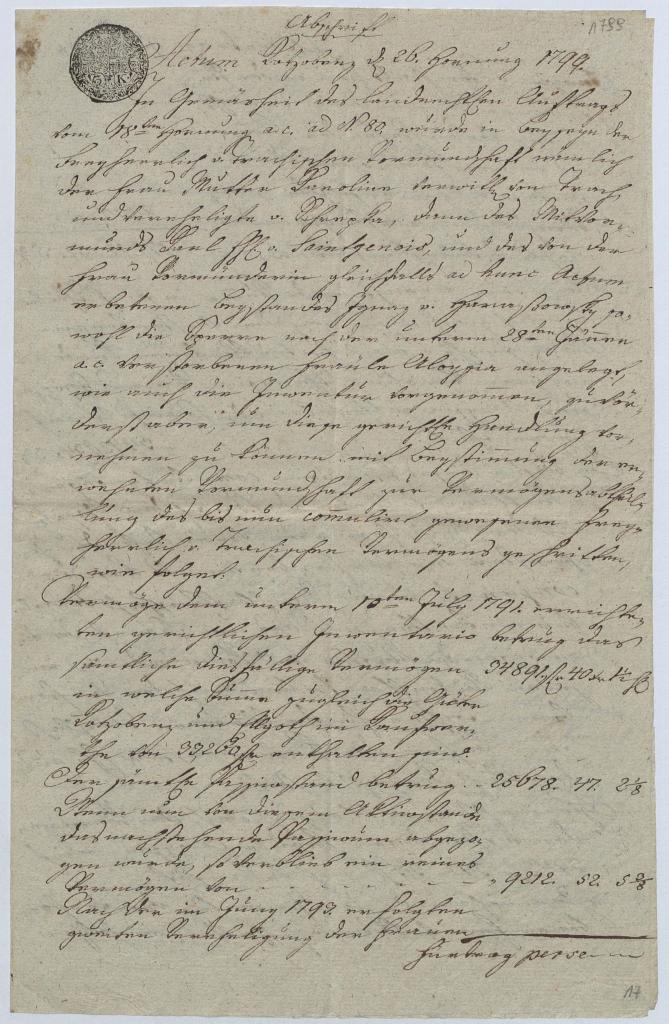 Abschrift
1799
Actum Kotzobenz d 26. Hornung 1799.
In Gemäsheit des Landrechtlichen Auftrags
vom 18ten Hornung a.c. ad N. 80. wurde in Beyseyn der
Freyherrlich v. Trachischen Vormundschaft nemlich
der Frau Mutter Karoline verwittw. von Trach,
und verehligte v. Skrzepka, dann des Mitvor-
munds Karl v. Saintgenois, und des von der
Frau Vormünderin gleichfalls ad hunc Actum
erbetenen Beystandes Ignaz v. so-
wohl die Sperre nach der unterm 28ten Jänner
a.c. verstorbenen Fräule Aloysia angelegt,
wie auch die Inventur vorgenommen, zuför-
derst aber, um diese gerichtl. Handlung vor-
nehmen zu können mit Beystimmung der er-
wehnten Vormundschaft zur Vermögensabthei-
lung des bis nun comulirt gewesenen Frey-
herrlich v. Trachischen Vermögens geschritten,
wie folget:
Vermöge dem unterm 10ten July 1791. errichte-
ten gerichtlichen Inventario betrug das
sämtliche diesfällige Vermögen 34891 f 40 x 1/2
in welche Summe zugleich die Güter
Kotzobenz und Ellgoth im Kaufwer-
the von enthalten sind.
Der sämtle Passivstand betrug .. 25678. 47. 2 1/8
Wenn nun von diesem Aktivstande
das nachstehende Passivum abgezo-
gen wurde, so verblieb ein reines
Vermögen von - - - - - - " 9212. 52. 5 3/8
Nach der im Juny 1793. erfolgten
zweiten Verehligung der Frauen
Fürtrag perse
17